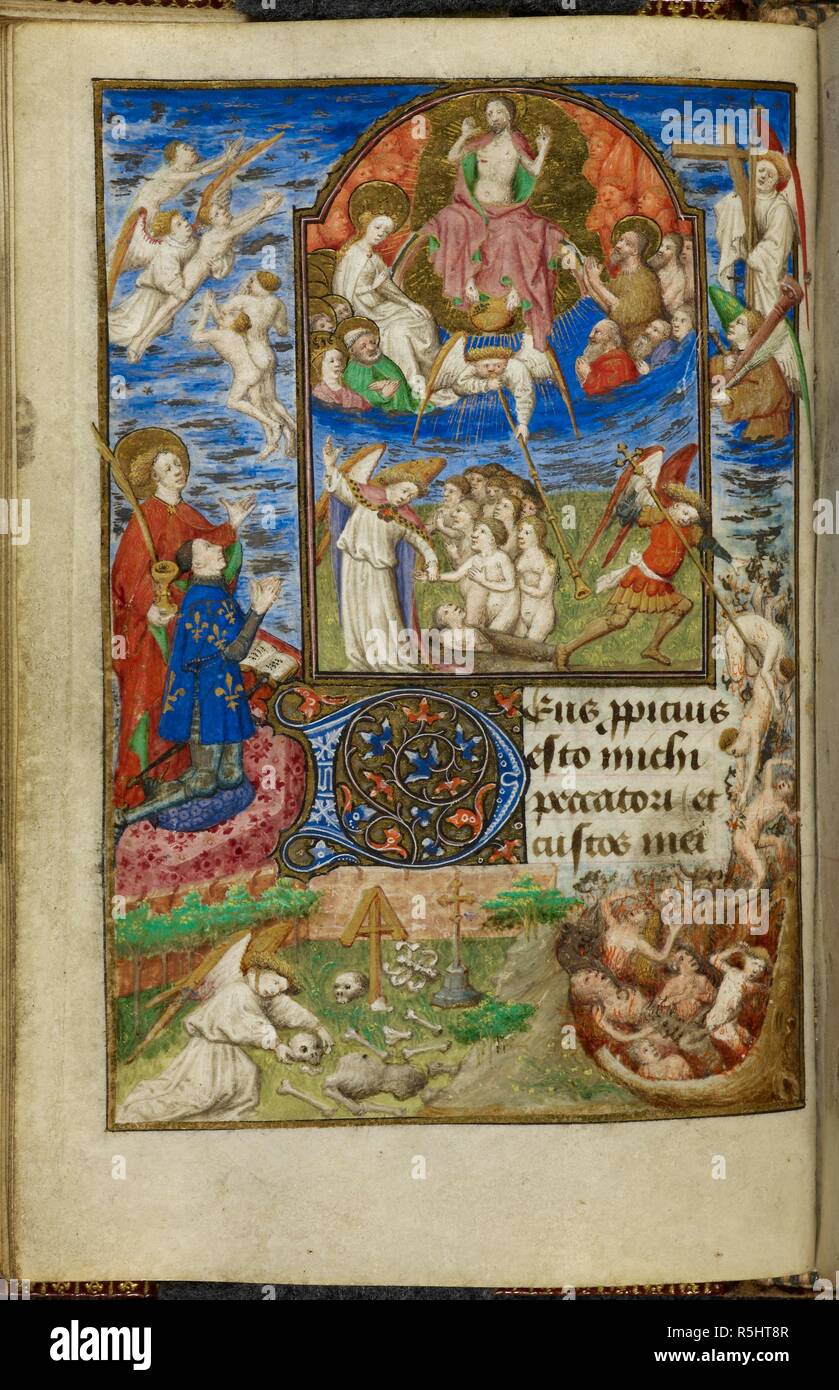 Deus ppicius
esto michi
peccatori et
custos mei
alamy
Image ID: R5HT8R
www.alamy.com